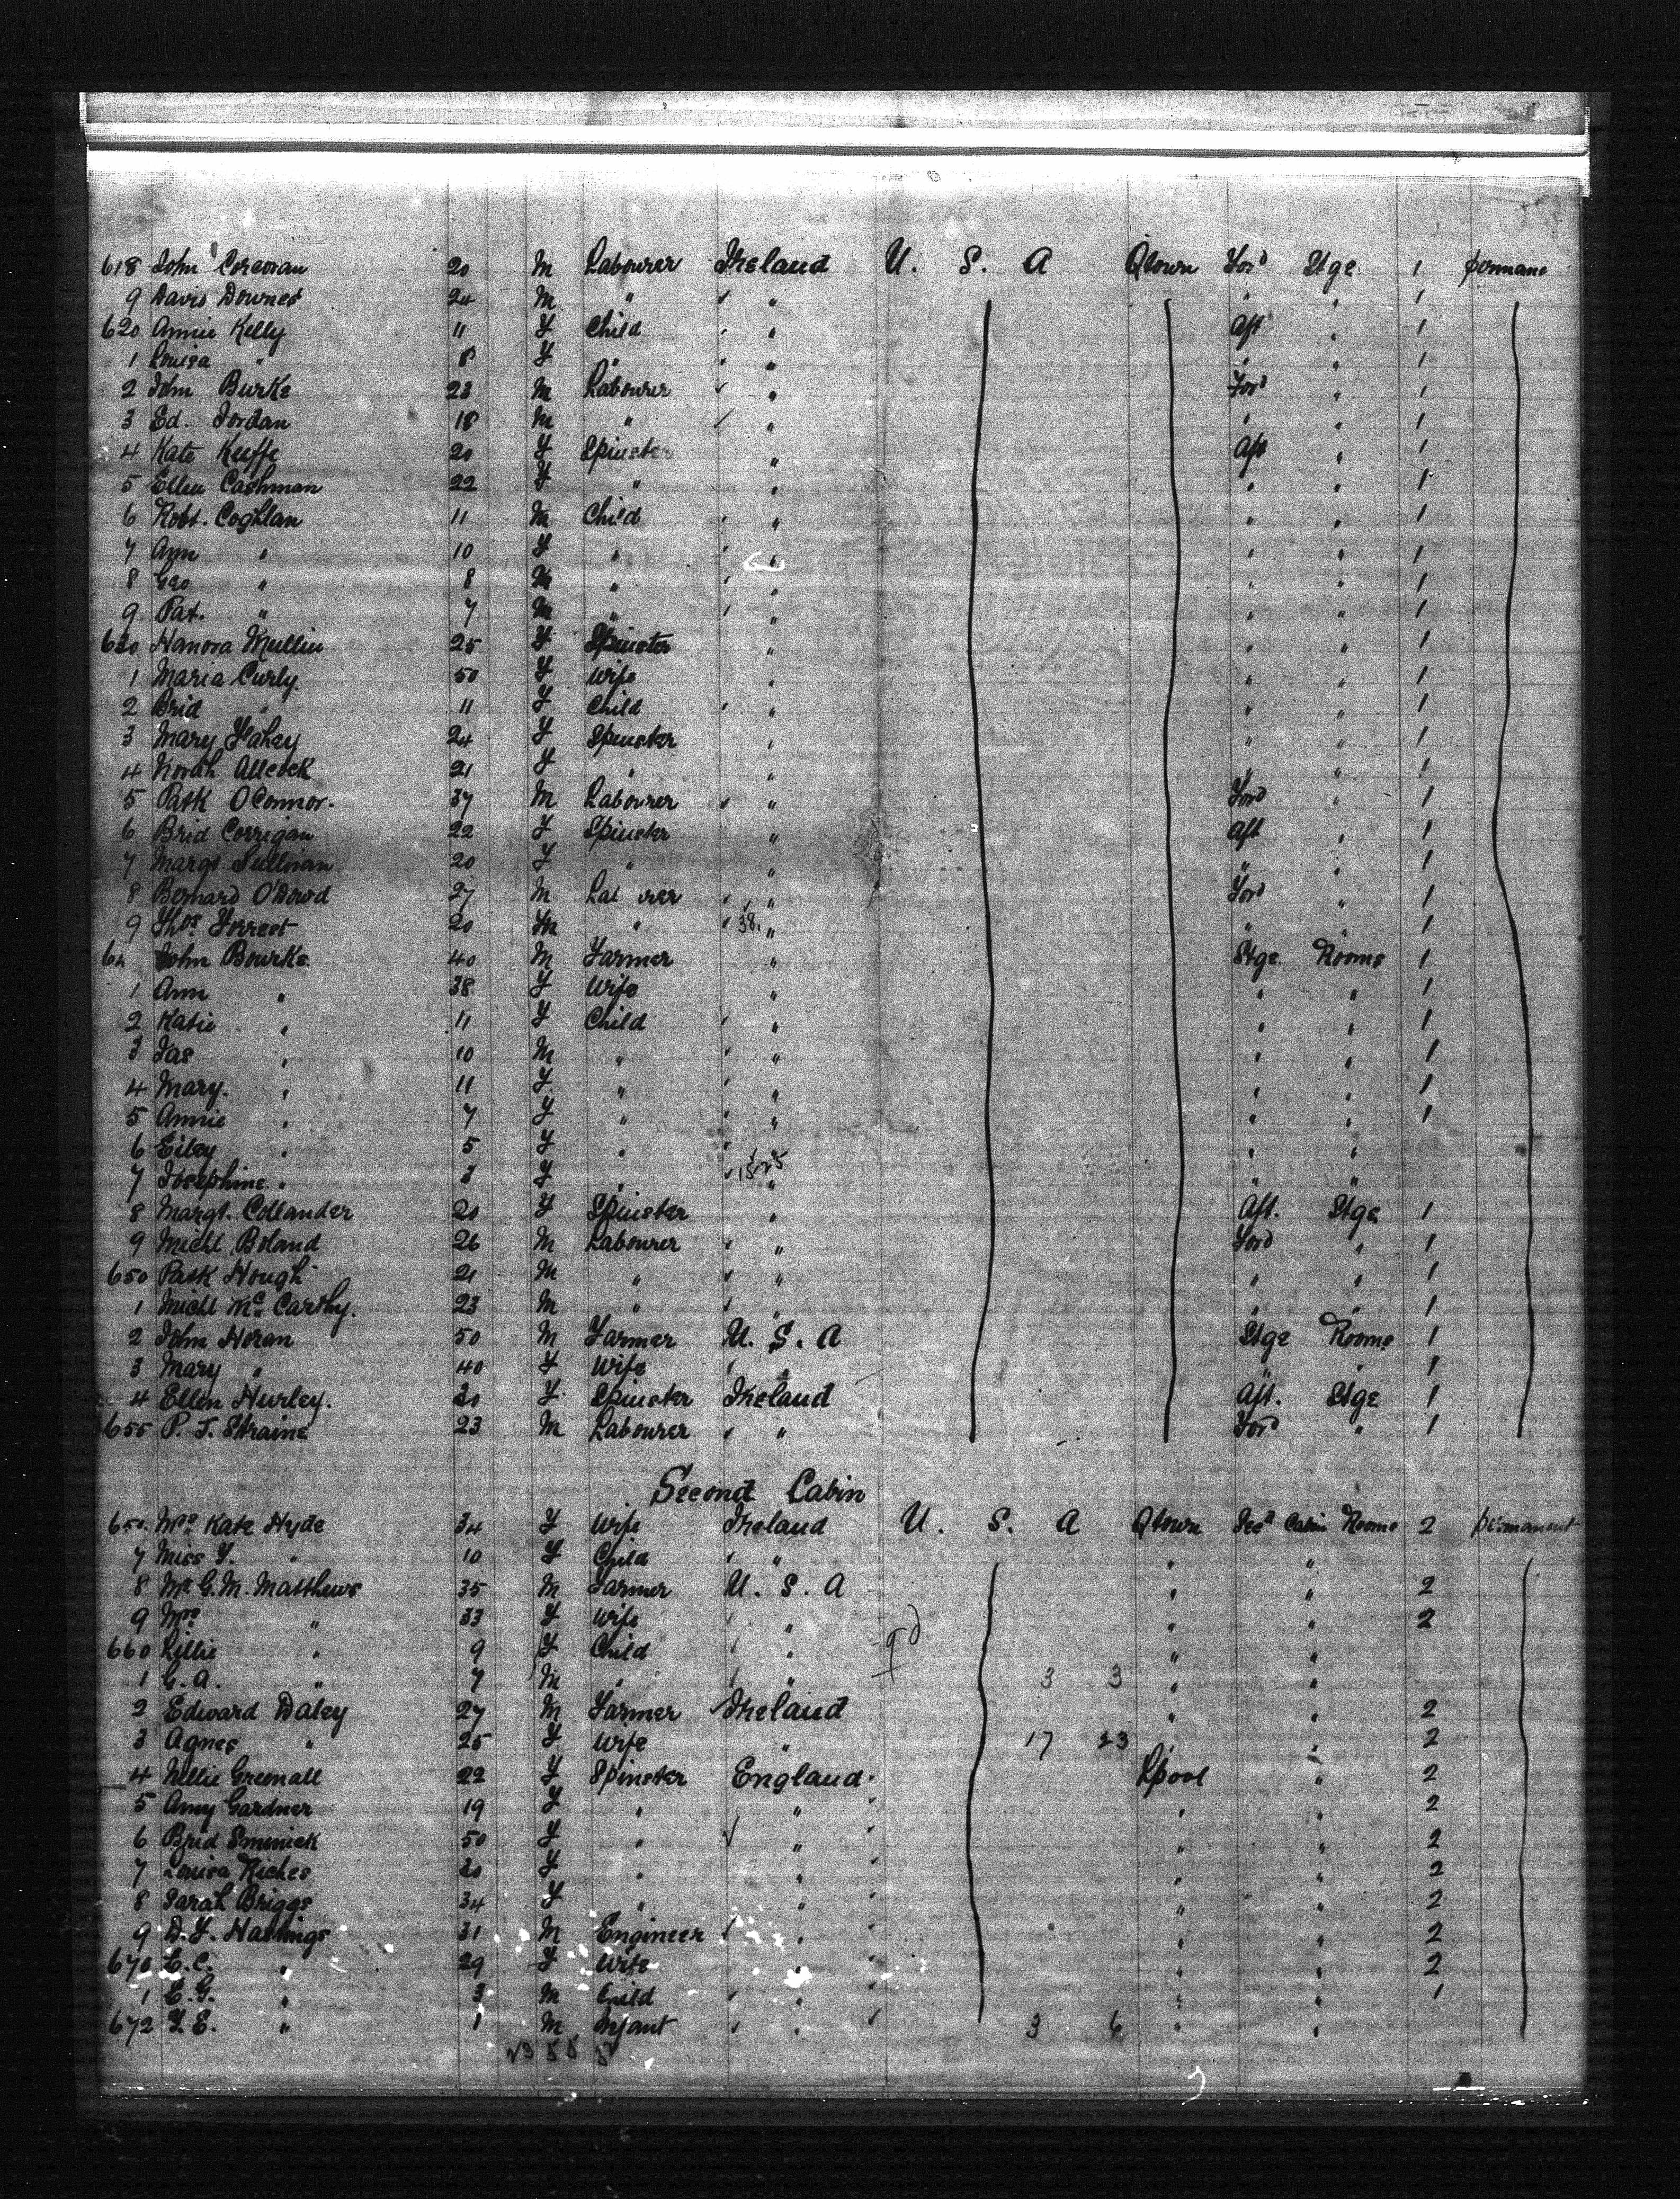 618 John Corcoran 20 M Labourer Ireland U. S. A Qtown Ford Stge 1 permane
9 David Downes 24 M " " " " 1
620 Annie Kelly 11 F Child " Aft " 1
1 Louisa " 8 F " " " " 1
2 John Burke 23 M Labourer " Ford " 1
3 Ed. Jordan 18 M " " " " 1
4 Kate Keeffe 20 F Spinster " Aft " 1
5 Ellen Cashman 22 F " " " " 1
6 Robt. Coghlan 11 M Child " " " 1
7 Ann " 10 F " " " " 1
8 Geo " 8 M " " " " 1
9 Pat. " 7 M " " " " 1
630 Hanora Mullin 25 F Spinster " " " 1
1 Maria Curly. 50 F Wife " " " 1
2 Brid " 11 F Child " " " 1
3 Mary Fahey 24 F Spinster " " " 1
4 Norah Allcock 21 F " " " " 1
5 Patk O'Connor. 37 M Labourer " Ford " 1
6 Brid Corrigan 22 F Spinster " Aft " 1
7 Margt Sullivan 20 F " " " " 1
8 Bernard O'Dowd 27 M Lab urer " Ford " 1
9 Thos Forrest 20 M " 38. " " " 1
64 John Bourke. 40 M Farmer " Stge. Rooms 1
1 Ann " 38 F Wife " " " 1
2 Katie " 11 F Child " " " 1
3 Jas " 10 M " " " " 1
4 Mary. " 11 F " " " " 1
5 Annie " 7 F " " " " 1
6 Eiley " 5 F " " " "
7 Josephine " 3 F " " " "
8 Margt. Collander 20 F Spinster " Aft. Stge 1
9 Michl Boland 26 M Labourer " Ford " 1
650 Patk Hough 21 M " " " " 1
1 Michl Mc Carthy. 23 M " " " " 1
2 John Horan 50 M Farmer U. S. A Stge Rooms 1
3 Mary " 40 F Wife " " " 1
4 Ellen Hurley. 20 F Spinster Ireland Aft. Stge 1
655 P. J. Straine 23 M Labourer " Ford " 1
Second Cabin
656. Mrs Kate Hyde 34 F Wife Ireland U. S. A Qtown Secd Cabin Rooms 2 permanent
7 Miss F. " 10 F Child " " "
8 Mr G. M. Matthews 35 M Farmer U. S. A " " 2
9 Mrs " 33 F Wife " " " 2
660 Lillie " 9 F Child " " "
1 G. A. " 7 M " " 3 3 " "
2 Edward Daley 27 M Farmer Ireland " " 2
3 Agnes " 25 F Wife " 17 23 " " 2
4 Nellie Greenall 22 F Spinster England. Lpool " 2
5 Amy Gardner 19 F " " " " 2
6 Brid Sminick 50 F " " " " 2
7 Louisa Riches 20 F " " " " 2
8 Sarah Briggs 34 F " " " " 2
9 D. F. Hastings 31 M Engineer " " " 2
670 E. C. " 29 F Wife " " " 2
1 E. G. " 3 M Child " " " 1
672 F. E. " 1 M Infant " 3 6 " "